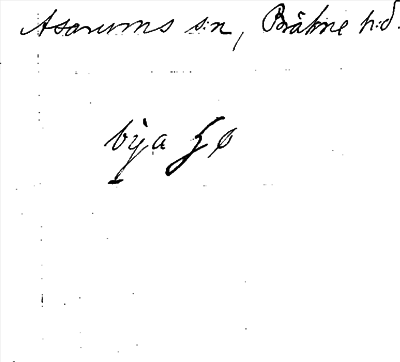 Asarums s:n, Bräkne h:d.
bya